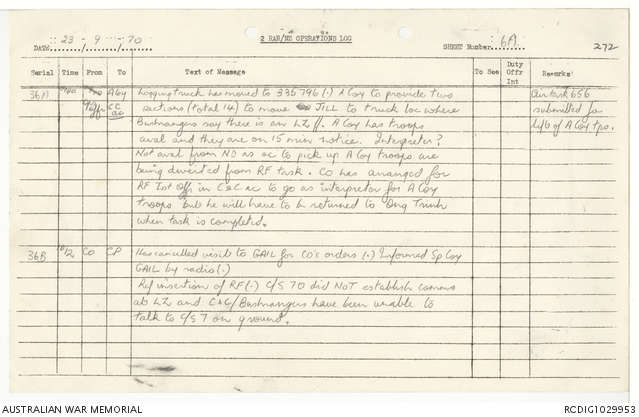 2 RAR/NZ OPERATIONS LOG
DATE 23 . 9 . 70
SHEET Number 6A
272
Serial Time From To Text of Message To See Duty Offr Int Remarks
36A A Coy Logging truck has moved to 335796 (.) A Coy to provide two Air task 656
sections (total 14) to move JILL to truck loc where submitted for
Bushrangers say there is an LZ ff. A Coy has troops lift of A Coy tps.
aval and they are on 15 min notice. Interpreter?
Not aval from ND as ac to pick up A Coy troops are
being diverted from RF task. Co has arranged for
RF Int Offr in C&C ac to go as interpretor for A Coy
troops but he will have to be returned to Ong Trinh
when task is completed.
36B CO CP Has cancelled visits to GAIL for CO's orders (.) Informed Sp Coy
GAIL by radio (.)
Ref insertion of RF (.) C/S 70 did NOT establish comms
at LZ and C&C/Bushrangers have been unable to
talk to C/S 7 on ground.
AUSTRALIAN WAR MEMORIAL
RCDIG1029953